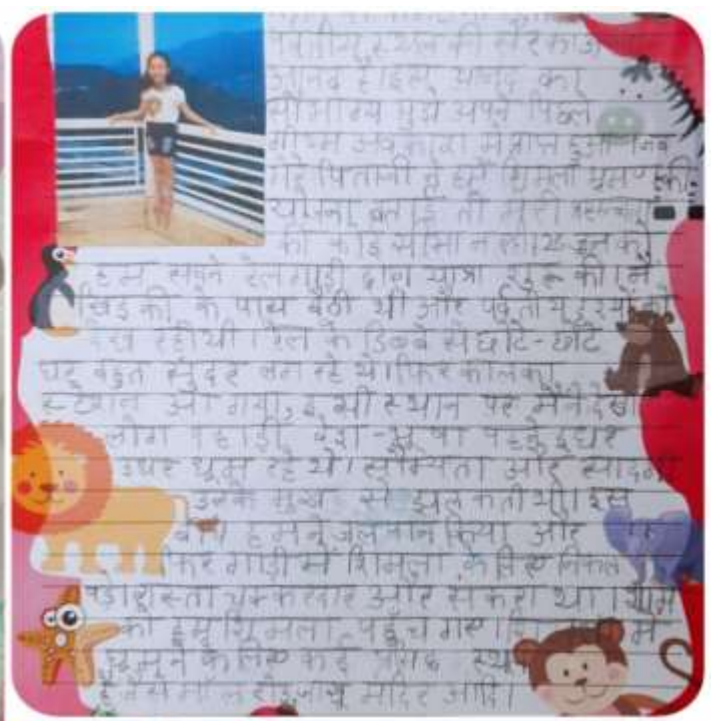 पर्वतीय स्थल की सैर का
आनंद
सौभाग्य मुझे अपने पिछले
ग्रीष्म अवकाश में प्राप्त हुआ। जब
पिताजी ने हमें शिमला भ्रमण की
योजना बताई तो मेरी
की कोई सीमा न
हम सबने रेलगाड़ी द्वारा यात्रा शुरू की। मैं
खिड़की के पास बैठी थी और पर्वतीय दृश्यों को
देख रही थी। रेल के डिब्बे से छोटे-छोटे
घर बहुत सुंदर लग रहे थे। फिर कालका
स्टेशन आ गया, इसी स्थान पर मैंने देखा
लोग पहाड़ी वेश-भूषा पहने इधर
उधर घूम रहे थे। सौम्यता और सादगी
उनके मुख से झलकती थी। इस
हमने जलपान किया और
फिर गाड़ी में शिमला के लिए निकले
रास्ता चक्करदार और सँकरा था। शाम
को हम शिमला पहुँच गए। में
घूमने के लिए कई
जैसे मॉल रोड, मंदिर आदि।